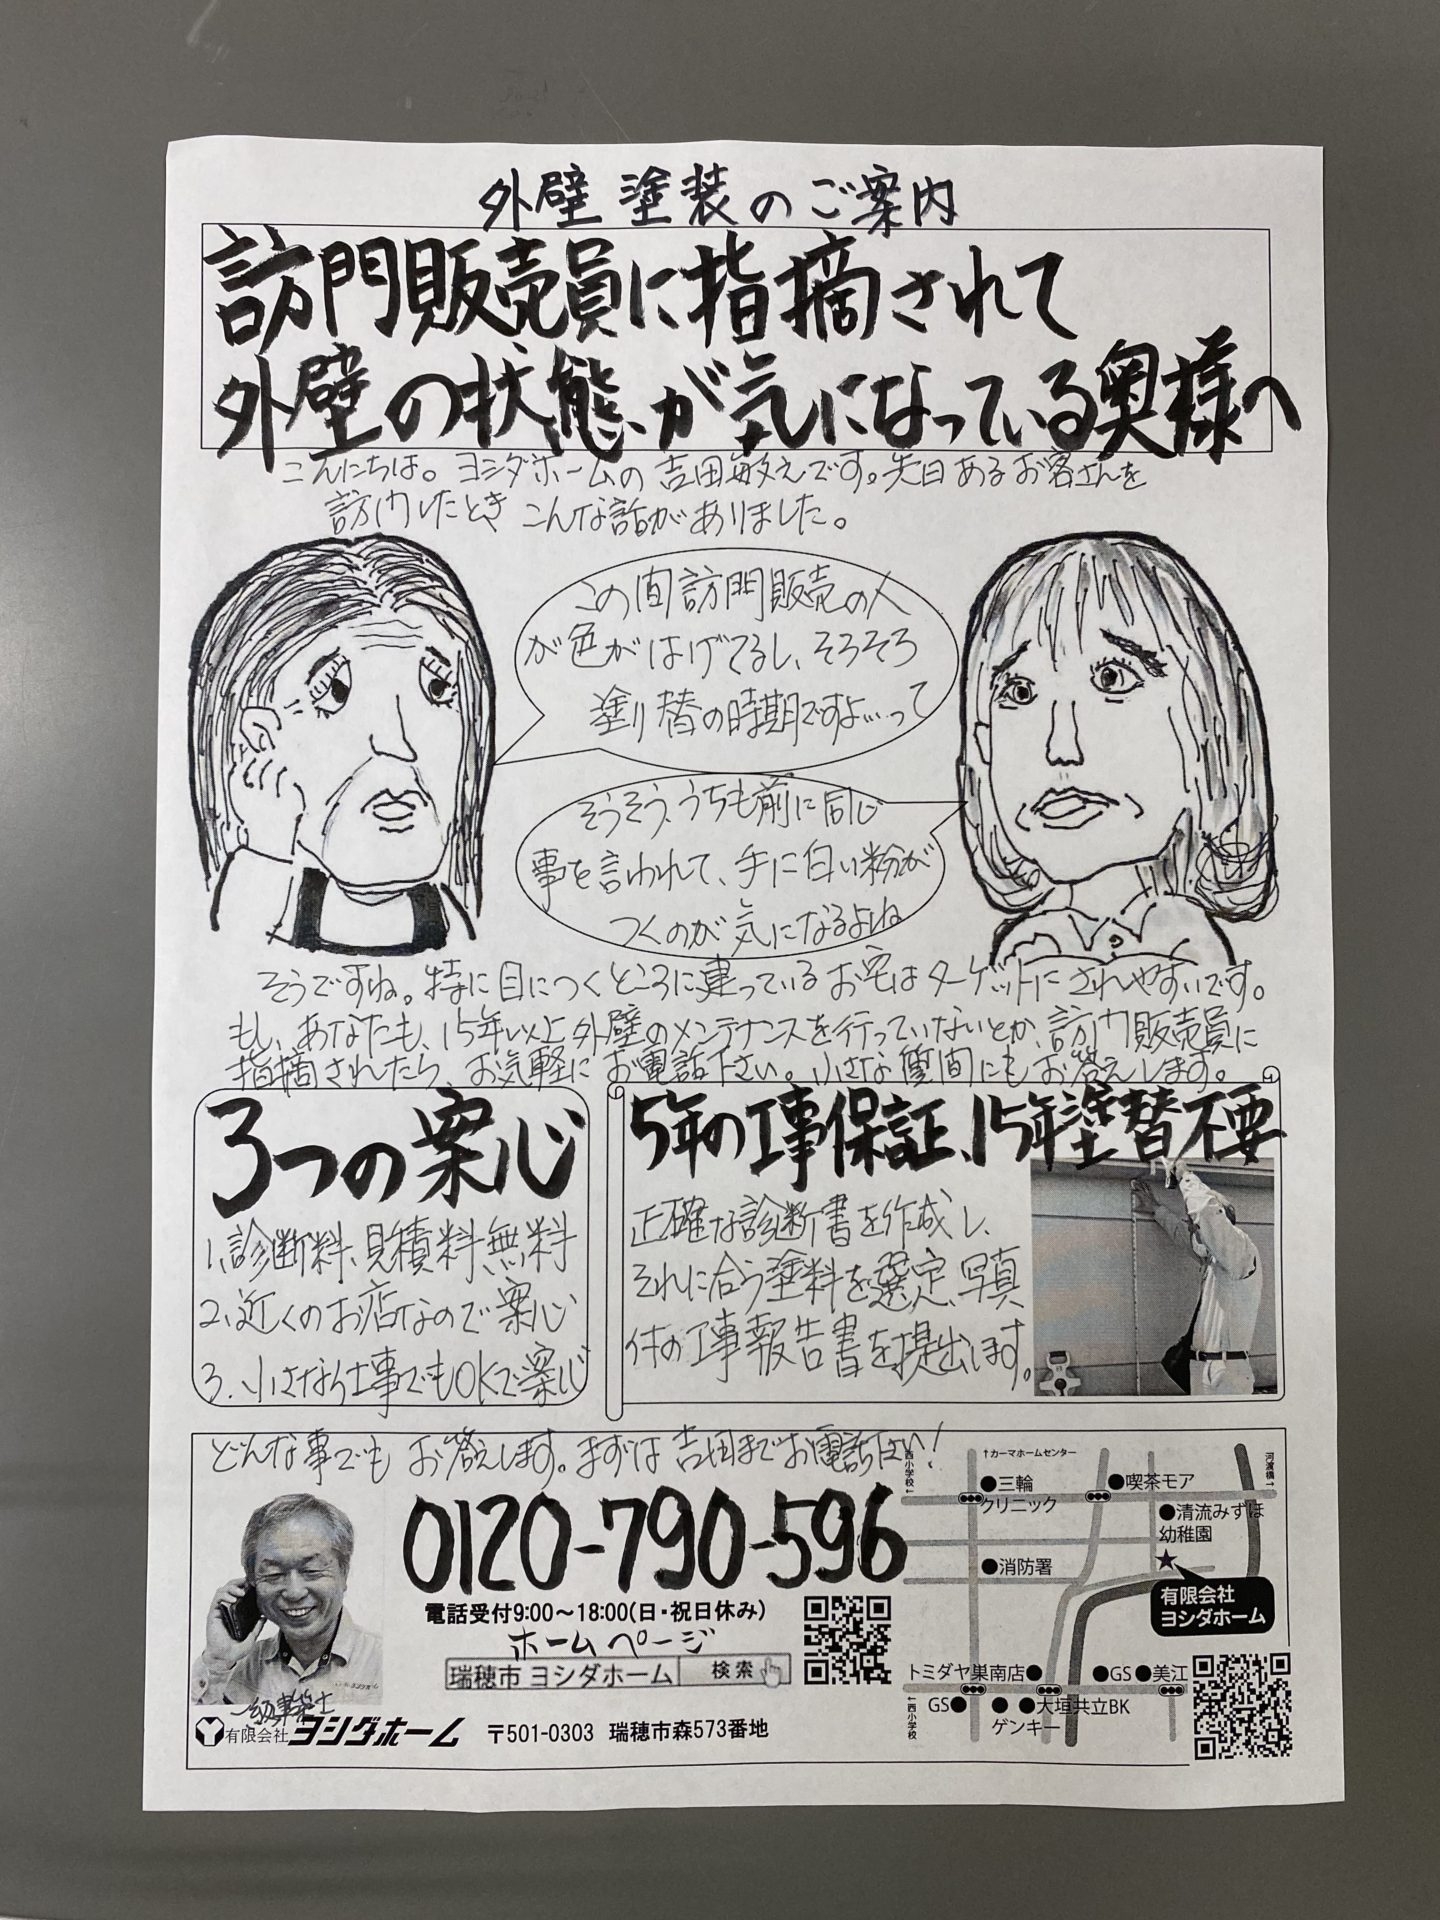 外壁塗装のご案内
訪門販売員に指摘されて
外壁の状態が気になっている奥様へ
こんにちは。ヨシダホームの吉田敏えです。先日あるお客さんを
訪門したときこんな話がありました。
この間訪門販売の人
が色がはげてるし、そろそろ
塗り替の時期ですよ…って
そうそう、うちも前に同じ
事を言われて、手に白い粉が
つくのが気になるよね
そうですね。特に目につくところに建っているお宅はターゲットにされやすいです。
もし、あなたも、15年以上外壁のメンテナンスを行っていないとか、訪門販売員に
指摘されたら、お気軽にお電話下さい。小さな質問にもお答えします。
3つの案心
1.診断料、見積料、無料
2.近くのお店なので案心
3.小さな仕事でもOKで案心
5年の工事保証、15年塗替不要
正確な診断書を作成し、
それに合う塗料を選定、写真
付の工事報告書を提出します。
どんな事でもお答えします。まずは吉田までお電話下さい!
0120-790-596
電話受付9:00～18:00(日・祝日休み)
ホームページ
瑞穂市 ヨシダホーム 検索
一級建築士
有限会社ヨシダホーム 〒501-0303 瑞穂市森573番地
↑カーマホームセンター
西小学校
河渡橋→
●三輪
クリニック
●喫茶モア
●清流みずほ
幼稚園
●消防署
★
有限会社
ヨシダホーム
トミダヤ巣南店●
●GS ●美江
GS● ● ●大垣共立BK
ゲンキー
←西小学校